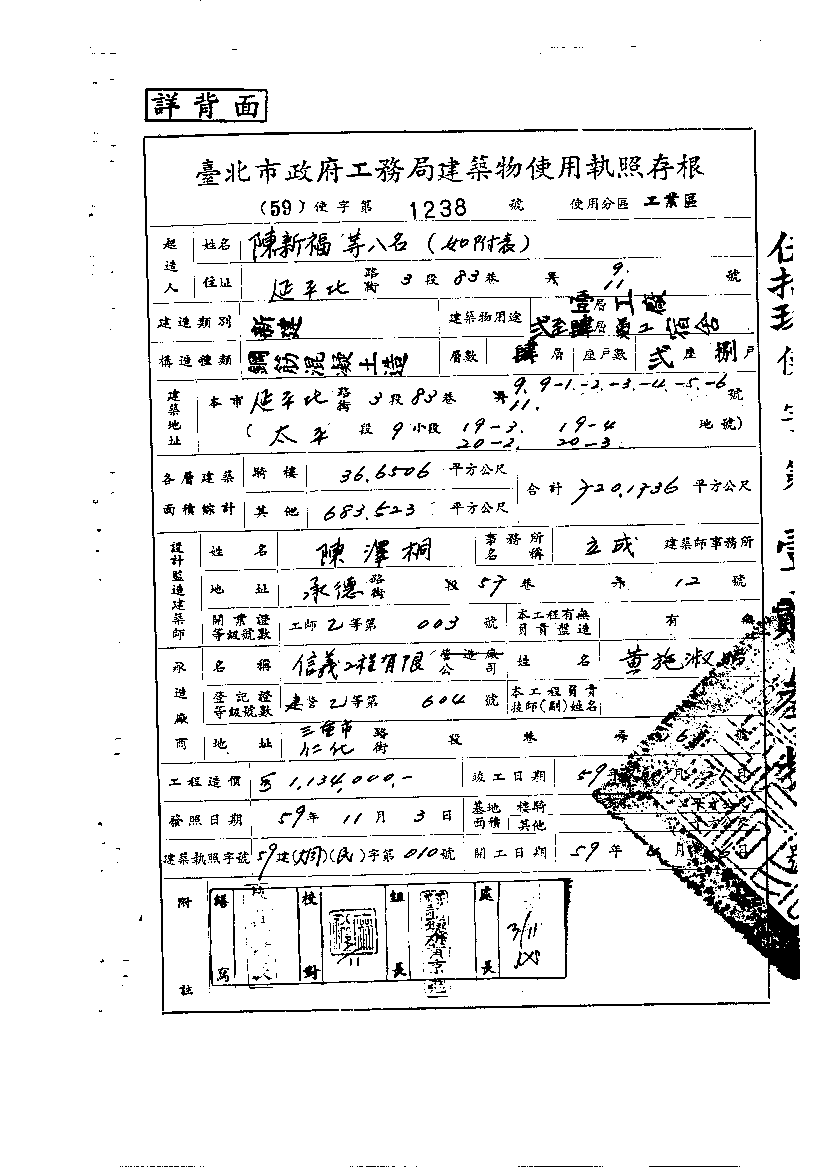 詳背面
臺北市政府工務局建築物使用執照存根
(59)使字第 1238 號 使用分區 工業區
起造人 姓名 陳新福等八名(如附表)
住址 延平北 路街 3 段 83 巷 弄 9. 11 號
建造類別 新建 建築物用途 壹層工廠 弍至肆層員工宿舍
構造種類 鋼筋混凝土造 層數 肆 層 座戶數 弍 座 捌 戶
建築地址 本市 延平北 路街 3 段 83 巷 弄 9. 9-1.-2.-3.-4.-5.-6 11. 號
(太平 段 9 小段 19-3. 19-4 20-2. 20-3. 地號)
各層建築面積綜計 騎樓 36.6506 平方公尺 合計 720.1736 平方公尺
其他 683.523 平方公尺
設計監造建築師 姓名 陳澤桐 事務所名稱 立成 建築師事務所
地址 承德 路街 段 57 巷 弄 12 號
開業證等級號數 工師乙等第 003 號 本工程有無負責監造 有
承造廠商 名稱 信義工程有限 營造廠公司 姓名 黃施淑
登記證等級號數 建營乙等第 604 號 本工程負責技師(副)姓名
地址 三重市仁化 路街 段 巷 弄 6
工程造價 1,134,000.- 竣工日期 59 年 月 日
發照日期 59 年 11 月 3 日 基地面積 樓騎 平方公尺
其他 平方公尺
建築執照字號 59建(大同)(民)字第 010 號 開工日期 59 年 月 日
附註 繕寫 校對 組長 處長 3/11